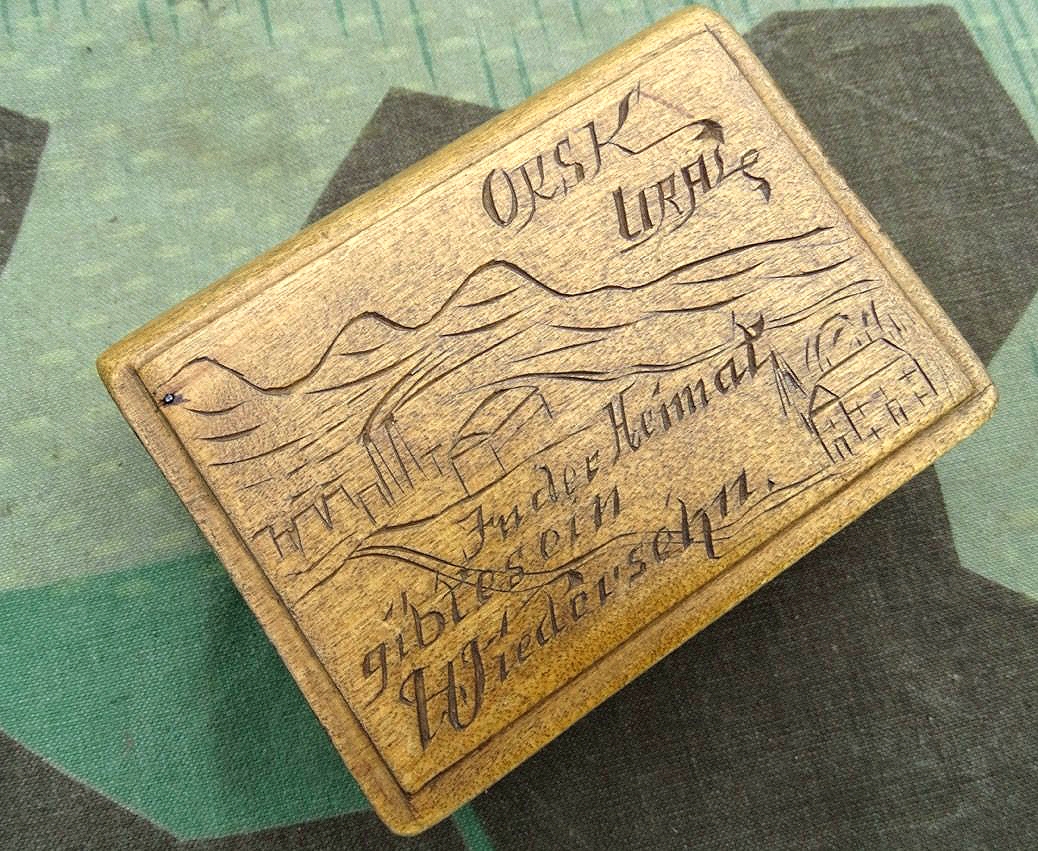 ORSK
URAL
In der Heimat
gibt es ein
Wiedersehn.